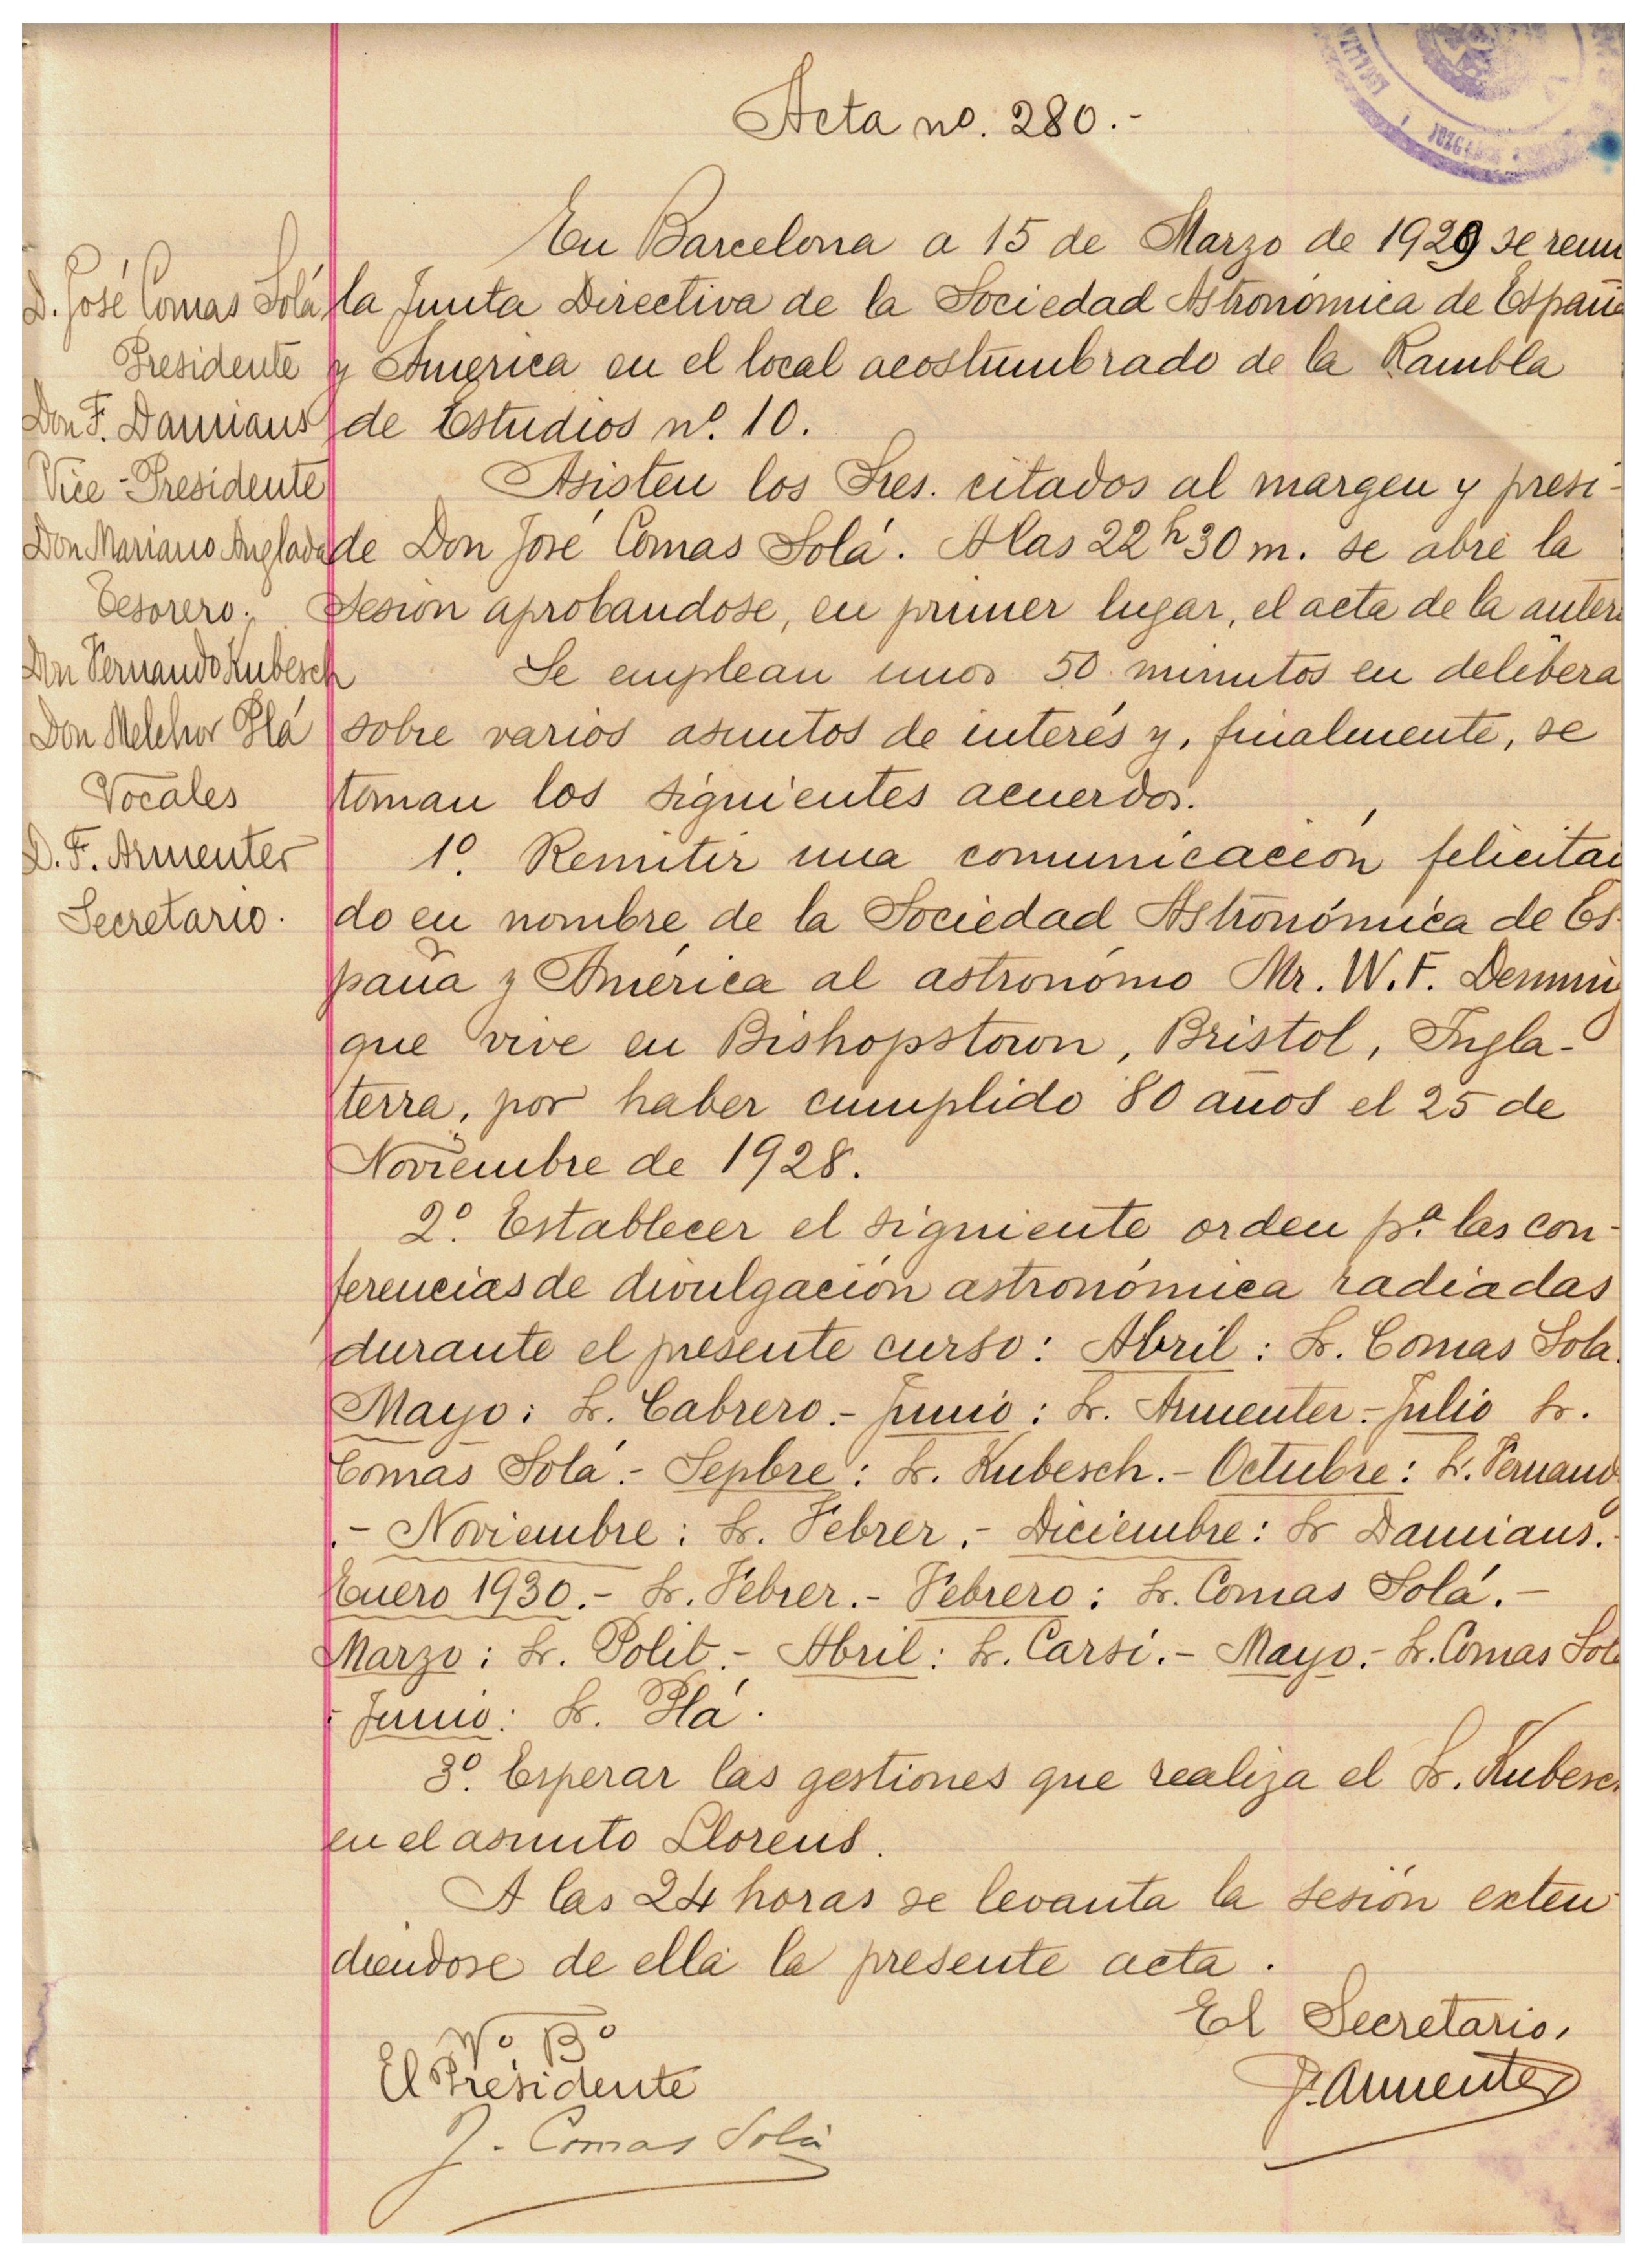 Acta nº. 280.-
En Barcelona a 15 de Marzo de 1929 se reun
la Junta Directiva de la Sociedad Astronómica de Españ
y America en el local acostumbrado de la Rambla
de Estudios nº. 10.
Asisten los Sres. citados al margen y presi-
de Don José Comas Solá. A las 22 h 30 m. se abre la
sesión aprobandose, en primer lugar, el acta de la anter
Se emplean unos 50 minutos en delibera
sobre varios asuntos de interés y, finalmente, se
toman los siguientes acuerdos.
1º. Remitir una comunicación felicitan
do en nombre de la Sociedad Astronómica de Es-
paña y América al astronómo Mr. W. F. Denning
que vive en Bishopstown, Bristol, Ingla-
terra, por haber cumplido 80 años el 25 de
Noviembre de 1928.
2º. Establecer el siguiente orden pª. las con-
ferencias de divulgación astronómica radiadas
durante el presente curso: Abril: Sr. Comas Sola.
Mayo: Sr. Cabrero.- Junio: Sr. Armenter.- Julio Sr.
Comas Solá.- Sepbre: Sr. Kubesch.- Octubre: Sr. Fernand
.- Noviembre: Sr. Febrer.- Diciembre: Sr Damians.-
Enero 1930.- Sr. Febrer.- Febrero: Sr. Comas Solá.-
Marzo: Sr. Polit.- Abril: Sr. Carsí.- Mayo.- Sr. Comas Sol
- Junio: Sr. Plá.
3º. Esperar las gestiones que realiza el Sr. Kubesc
en el asunto Llorens.
A las 24 horas se levanta la sesión exten-
diendose de ella la presente acta.
El Secretario,
F. Armenter
Vº Bº
El Presidente
J. Comas Solà
D. José Comas Solá
Presidente
Don F. Damians
Vice-Presidente
Don Mariano Anglada
Tesorero.
Don Fernando Kubesch
Don Melchor Plá
Vocales
D. F. Armenter
Secretario.